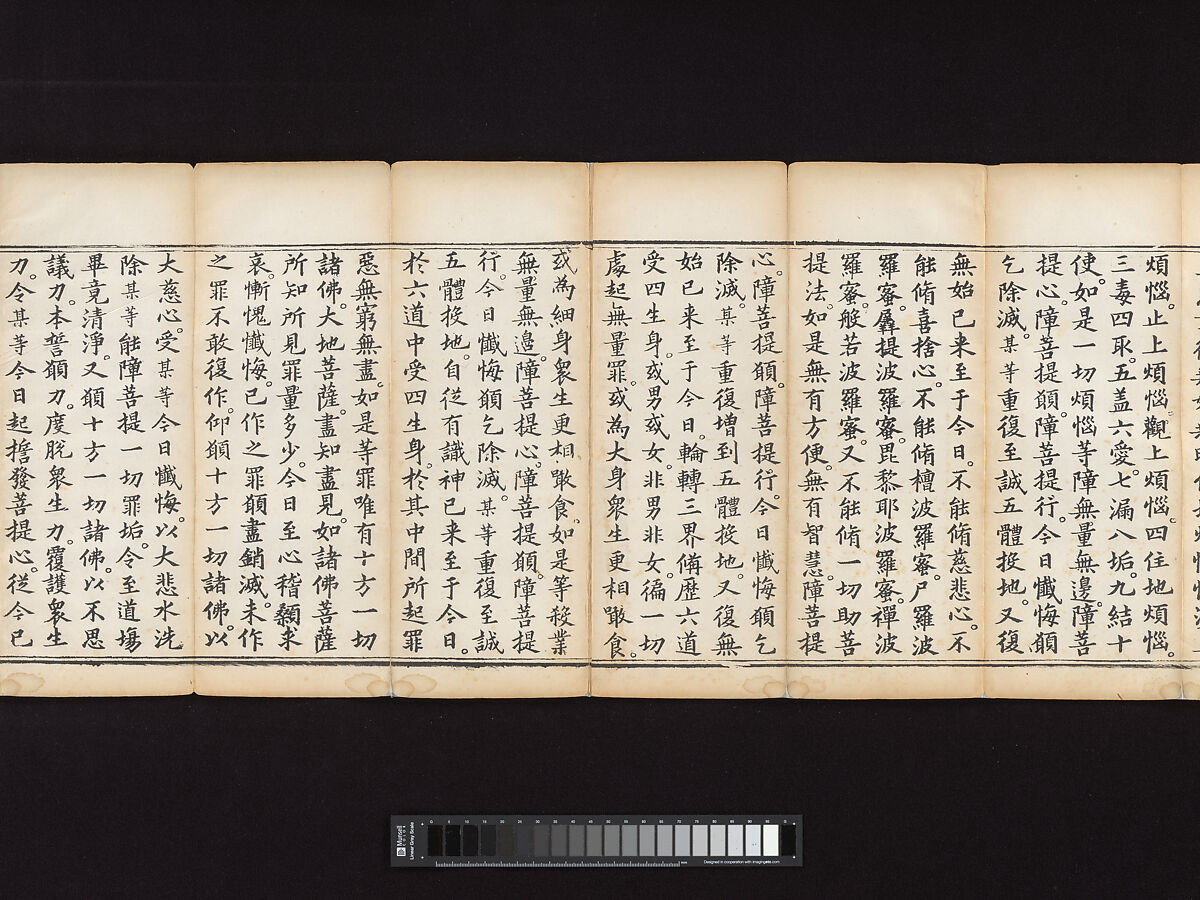 煩惱。止上煩惱觀上煩惱。四住地煩惱。
三毒四取。五盖六愛。七漏八垢。九結十
使。如是一切煩惱等障無量無邊。障菩
提心。障菩提願。障菩提行。今日懺悔願
乞除滅。某等重復至誠五體投地。又復
無始已来至于今日。不能脩慈悲心。不
能脩喜捨心。不能脩檀波羅蜜。尸羅波
羅蜜。羼提波羅蜜。毘黎耶波羅蜜。禪波
羅蜜。般若波羅蜜。又不能脩一切助菩
提法。如是無有方便。無有智慧。障菩提
心。障菩提願。障菩提行。今日懺悔願乞
除滅。某等重復増到五體投地。又復無
始已来至于今日。輪轉三界備歷六道
受四生身。或男或女。非男非女。徧一切
處起無量罪。或為大身衆生更相噉食。
或為細身衆生更相噉食。如是等殺業
無量無邊。障菩提心。障菩提願。障菩提
行。今日懺悔願乞除滅。某等重復至誠
五體投地。自從有識神已来至于今日。
於六道中受四生身。於其中間所起罪
惡無窮無盡。如是等罪唯有十方一切
諸佛。大地菩薩。盡知盡見。如諸佛菩薩
所知所見罪量多少。今日至心稽顙求
哀。慚愧懺悔。已作之罪願盡銷滅。未作
之罪不敢復作。仰願十方一切諸佛。以
大慈心。受某等今日懺悔。以大悲水洗
除某等能障菩提一切罪垢。令至道場
畢竟清淨。又願十方一切諸佛。以不思
議力。本誓願力。度脫衆生力。覆護衆生
力。令某等今日起誓發菩提心。從今已
Munsell
Linear Gray Scale
Designed in cooperation with imagingetc.com